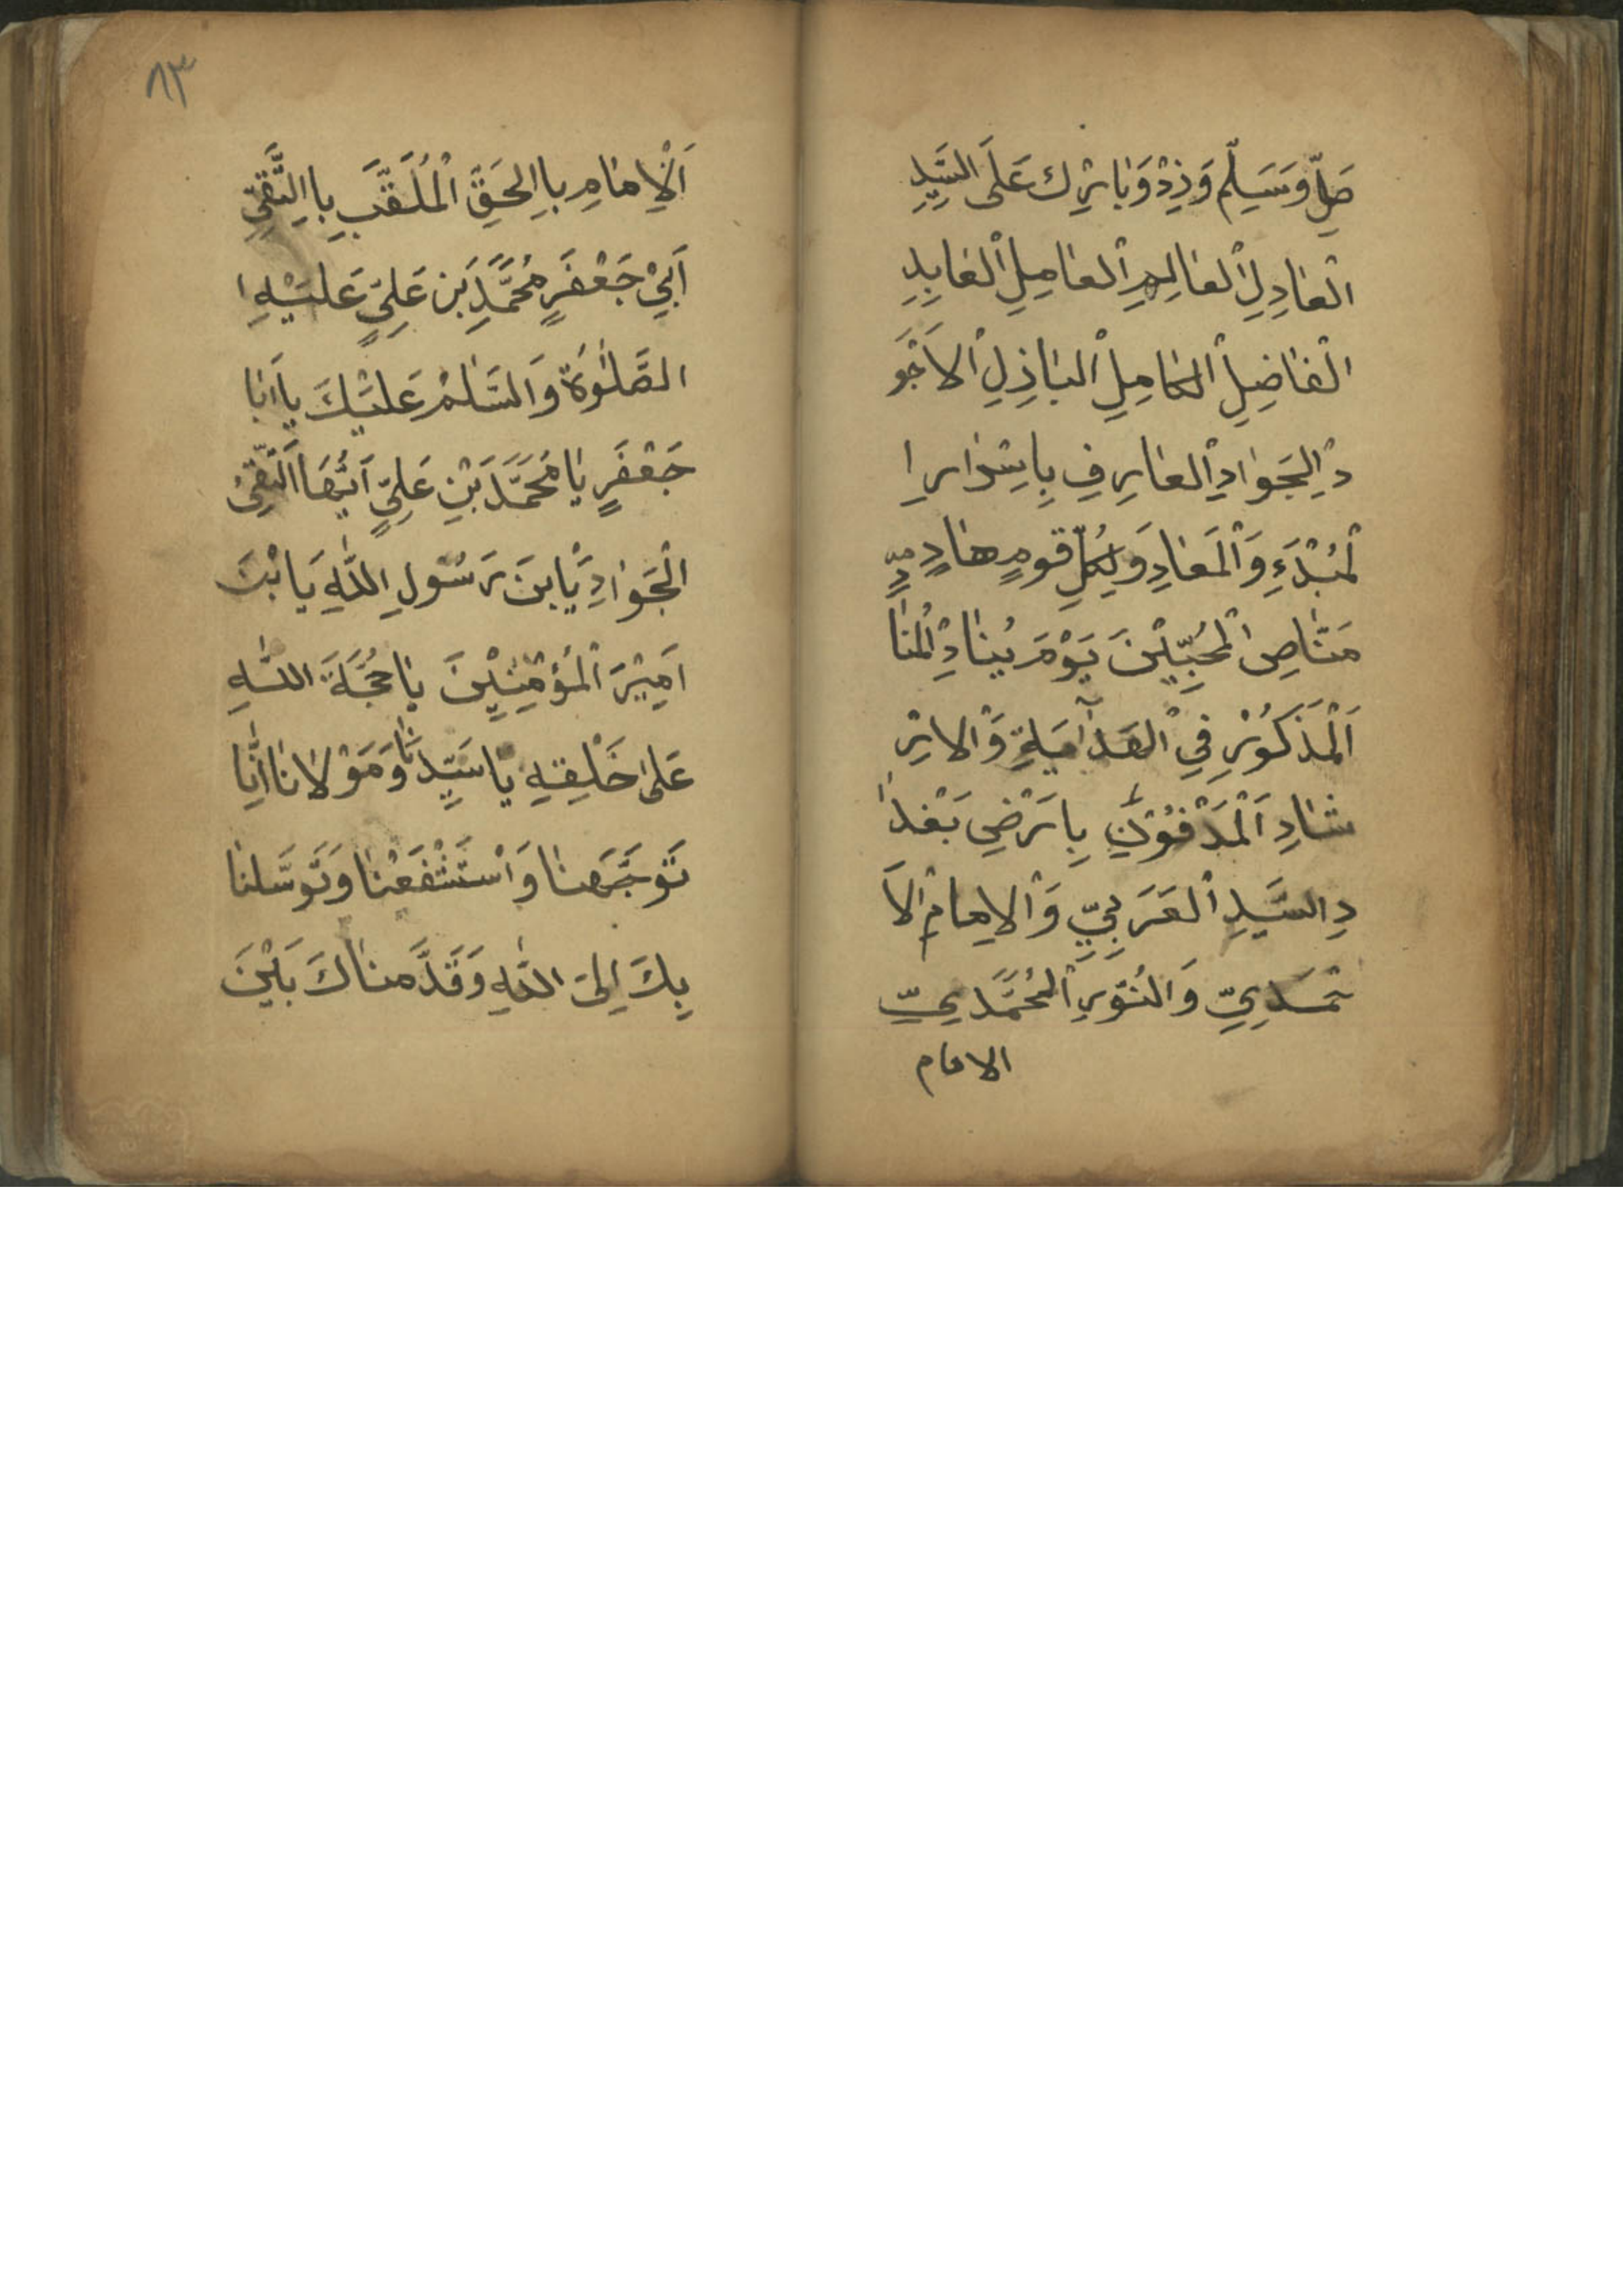 صَلِّ وَسَلِّم وَزِدْ وَبَارِك عَلَى السَّيِّدِ
الْعَادِلِ الْعَالِمِ الْعَامِلِ الْعَابِدِ
الْفَاضِلِ الْكَامِلِ الْبَاذِلِ الْاَجْوَ
دِ الْجَوَادِ الْعَارِفِ بِاَسْرَارِ ا
لْمُبْدَءِ وَالْمَعَادِ وَلِكُلِّ قَومٍ هَادٍ
مَنَاصِ الْمُحِبِّيْنَ يَوْمَ يُنَادِ الْمُنَا
اَلْمَذْكُوْرِ فِي الْهِدَايَةِ وَالْارْ
شَادِ اَلْمَدْفُوْنِ بِاَرْضِ بَغْدَا
دِ السَّيِّدِ الْعَرَبِيِّ وَالْاِمَامِ الْاَ
حْمَدِيِّ وَالنُّوْرِ الْمُحَمَّدِيِّ
الامام
٨٣
اَلْاِمَامِ بِاالْحَقِّ الْمُلَقَّبِ بِاالتَّقِيِّ
اَبِيْ جَعْفَرٍ مُحَمَّدِ بَنِ عَلِيٍّ عَلَيْهِ ا
الصَّلٰوةُ وَالسَّلٰمُ عَلَيْكَ يَا اَبَا
جَعْفَرٍ يَا مُحَمَّدَ بَنِ عَلِيٍّ اَيُّهَا التَّقِيُّ
الْجَوَادِ يَابنَ رَسُولِ اللّٰهِ يَا بْنَ
اَمِيْرَ الْمُؤْمِنِيْنَ يَا حُجَّةَ اللّٰهِ
عَلٰى خَلْقِهِ يَا سَيِّدَنَا وَمَوْلَانَا اِنَّا
تَوَجَّهْنَا وَاسْتَشْفَعْنَا وَتَوَسَّلنَا
بِكَ اِلىَ اللّٰهِ وَقَدَّمنَاكَ بَيْنَ